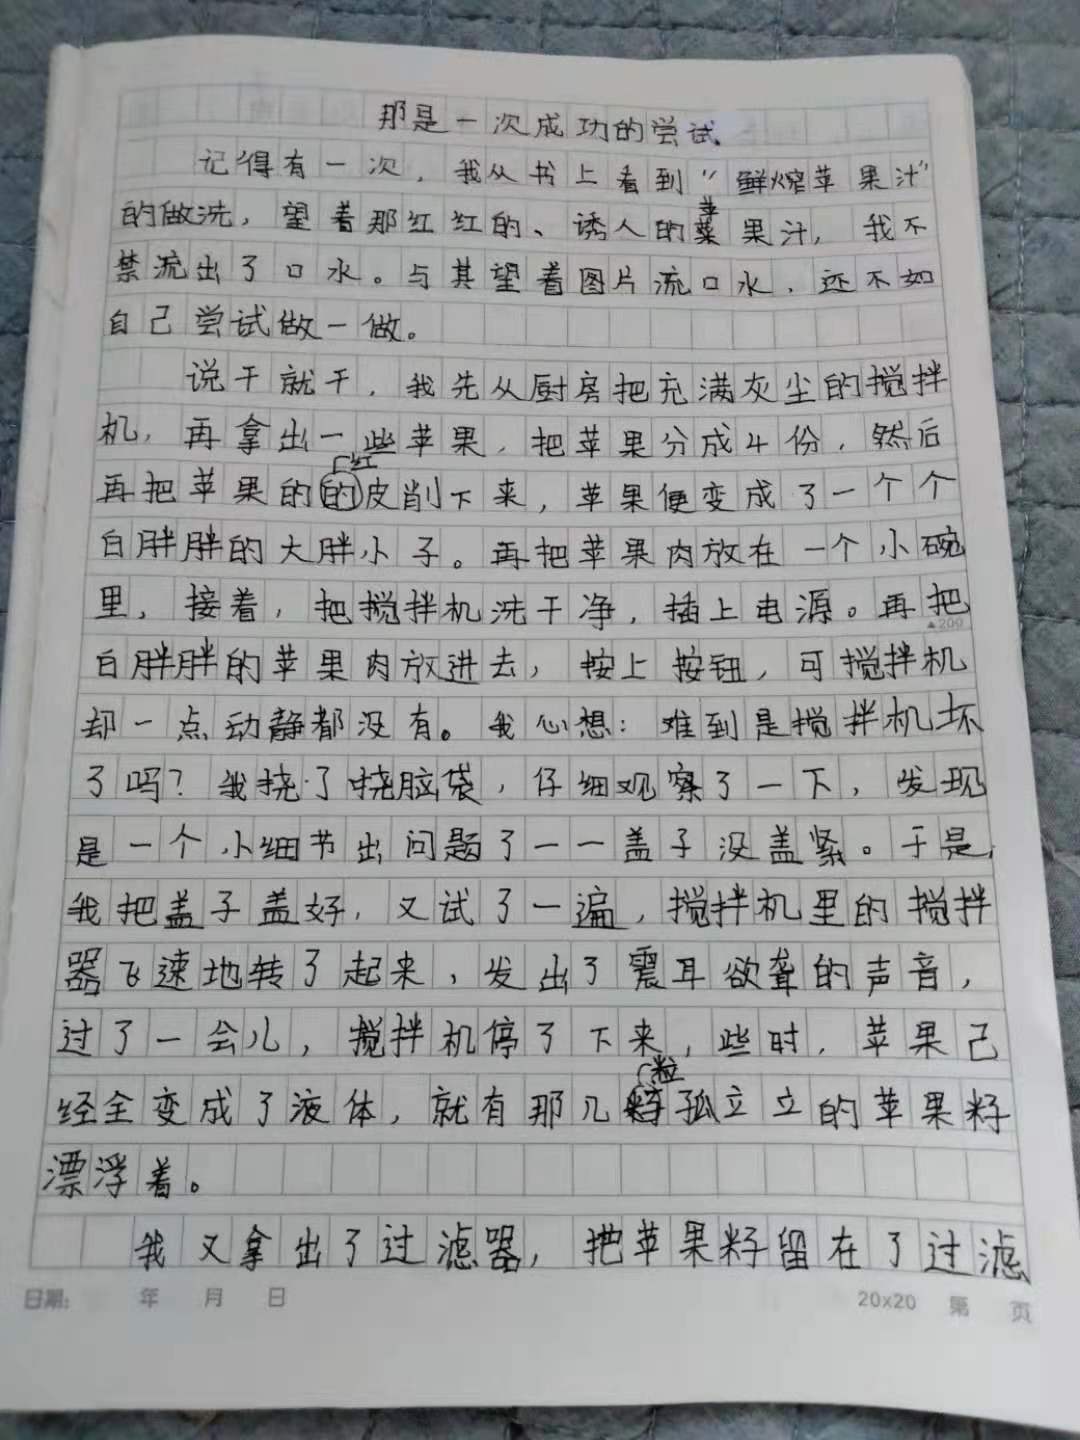 那是一次成功的尝试
记得有一次，我从书上看到“鲜榨苹果汁”
的做法，望着那红红的、诱人的苹果汁，我不
禁流出了口水。与其望着图片流口水，还不如
自己尝试做一做。
说干就干，我先从厨房把充满灰尘的搅拌
机，再拿出一些苹果，把苹果分成4份，然后
再把苹果的红皮削下来，苹果便变成了一个个
白胖胖的大胖小子。再把苹果肉放在一个小碗
里，接着，把搅拌机洗干净，插上电源。再把
▲200
白胖胖的苹果肉放进去，按上按钮，可搅拌机
却一点动静都没有。我心想：难到是搅拌机坏
了吗？我挠了挠脑袋，仔细观察了一下，发现
是一个小细节出问题了——盖子没盖紧。于是，
我把盖子盖好，又试了一遍，搅拌机里的搅拌
器飞速地转了起来，发出了震耳欲聋的声音，
过了一会儿，搅拌机停了下来，些时，苹果己
经全变成了液体，就有那几粒孤立立的苹果籽
漂浮着。
我又拿出了过滤器，把苹果籽留在了过滤
日期： 年 月 日 20x20 第 页